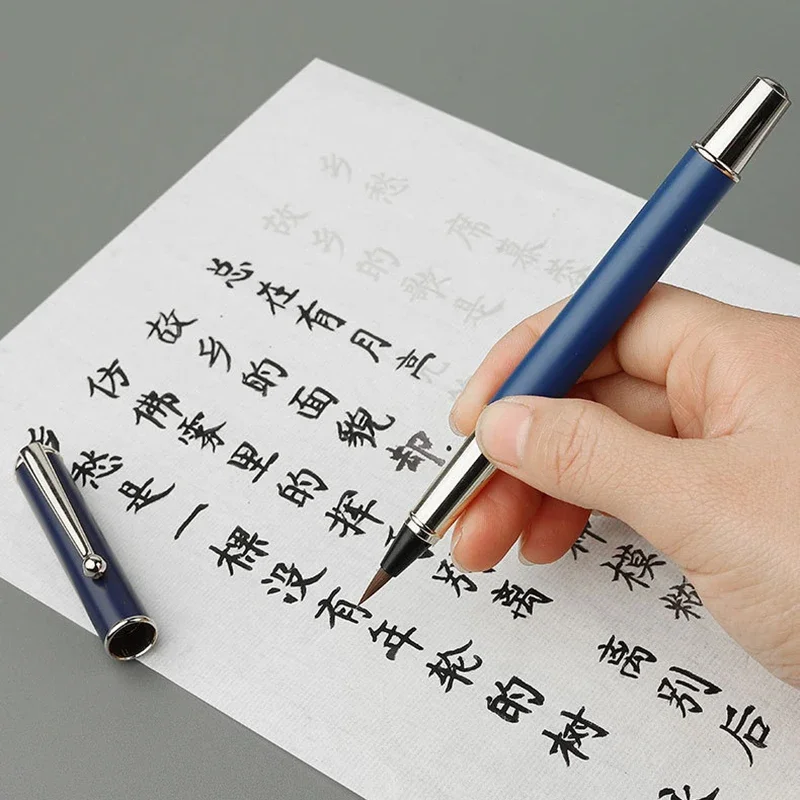 乡愁 席慕蓉
故乡的歌是
总在有月亮
故乡的面貌却 种模糊
仿佛雾里的挥 别离 离别后
乡愁是一棵没有年轮的树